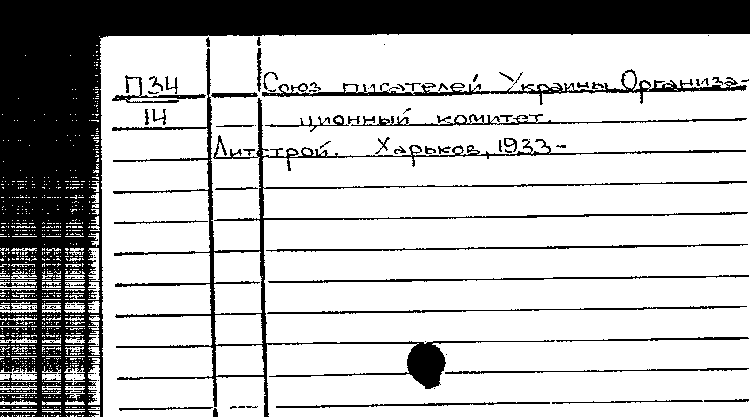 П34 Союз писателей Украины. Организа-
14 ционный комитет.
Литстрой. Харьков, 1933-